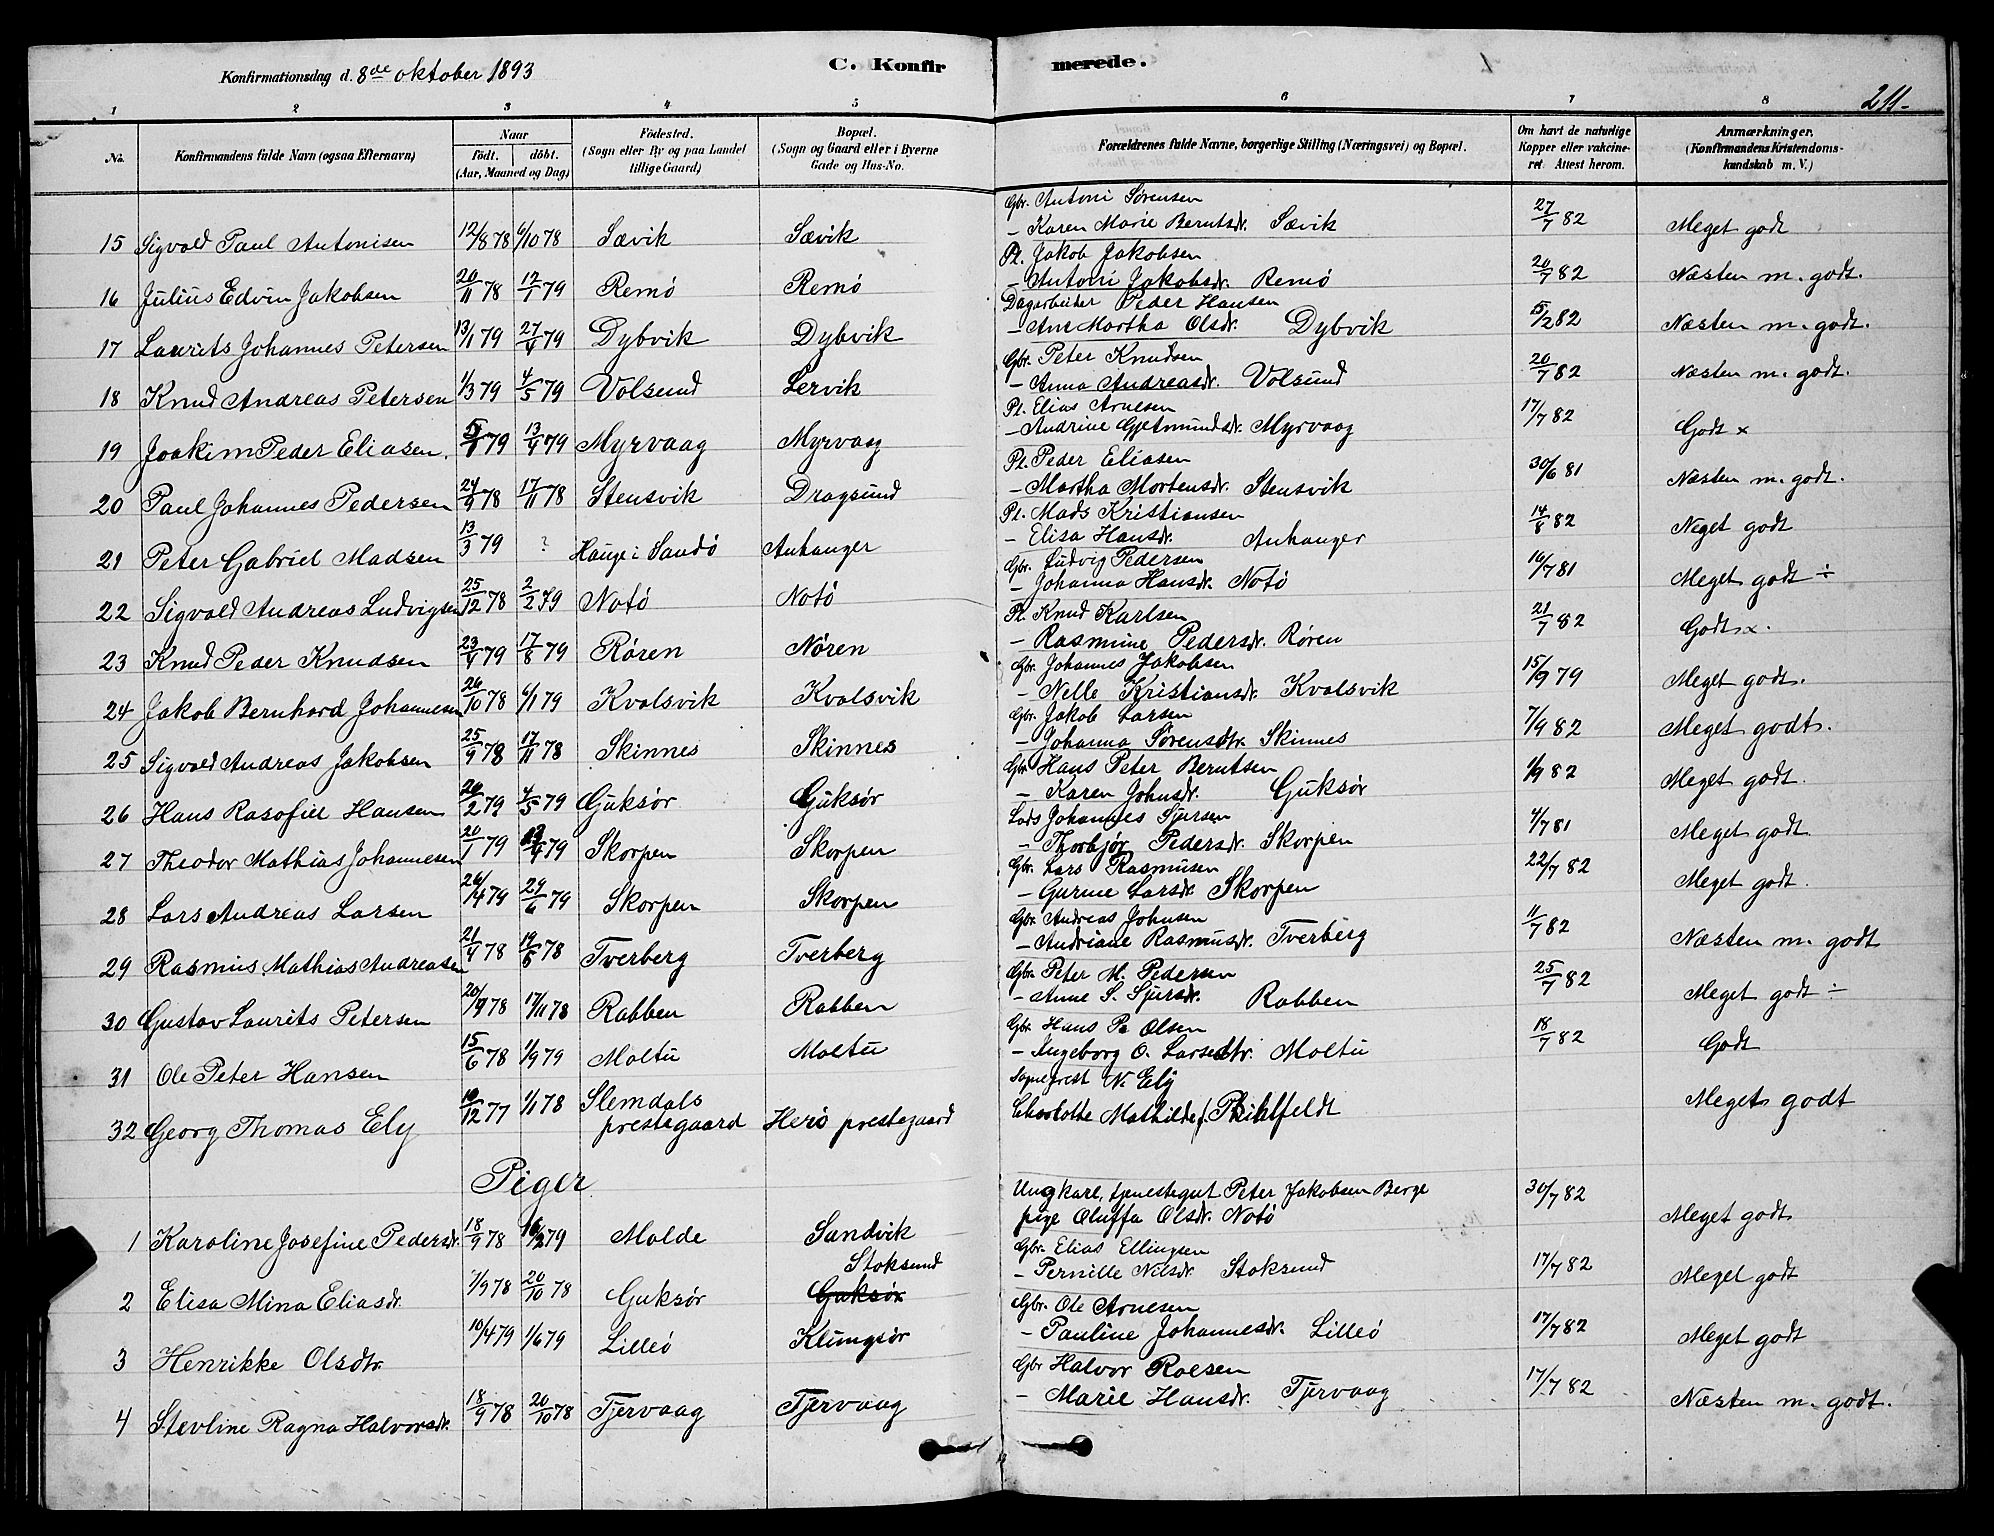 Konfirmationsdag d. 8de oktober 1893 C. Konfirmerede. 211.
1 2 3 4 5 6 7 8
No. Konfirmandens fulde Navn (ogsaa Efternavn) Naar født. døbt. (Aar, Maaned og Dag) Födested. (Sogn eller By og paa Landet tillige Gaard) Bopæl. (Sogn og Gaard eller i Byerne Gade og Hus-No. Forældrenes fulde Navne, borgerlige Stilling (Næringsvei) og Bopæl. Om havt de naturlige Kopper eller vakcineret. Attest herom. Anmærkninger. (Konfirmandens Kristendomskundskab m. V.)
15 Sigvald Paul Antonisen 12/8 78 6/10 78 Sævik Sævik Gbr. Antoni Sørensen - Karen Marie Berntsdr. Sævik 27/7 82 Meget godt
16 Julius Edvin Jakobsen 20/11 78 12/1 79 Remö Remö Pl. Jakob Jakobsen - Antoni Jakobsdr. Remö 20/7 82 Næsten m. godt.
17 Laurits Johannes Petersen 13/1 79 27/4 79 Dybvik Dybvik Dagarbeider Peder Hansen - Ane Martha Olsdr. Dybvik 5/2 82 Næsten m. godt.
18 Knud Andreas Petersen 1/3 79 4/5 79 Volsund Lervik Gbr. Peter Knudsen - Anna Andreasdr. Volsund 20/7 82 Næsten m. godt.
19 Joakim Peder Eliasen. 79 13/4 79 Myrvaag Myrvaag Pl. Elias Arnesen - Andrine Gjetmundsdr. Myrvaag 17/7 82 Godt x
20 Paul Johannes Pedersen 24/9 78 17/11 78 Stensvik Dragsund Pl. Peder Eliasen - Martha Mortensdr. Stensvik 30/6 81 Næsten m. godt.
21 Peter Gabriel Madsen 13/3 79 ? Hauge i Sandö Anhanger Pl. Mads Kristiansen - Elisa Hansdr. Anhanger 14/8 82 Neget godt
22 Sigvald Andreas Ludvigsen 25/12 78 2/2 79 Notö Notö Gbr. Ludvig Pedersen - Johanna Hansdr. Notö 16/7 81 Meget godt ÷
23 Knud Peder Knudsen 23/4 79 17/8 79 Røren Nøren Pl. Knud Karlsen - Rasmine Pedersdr. Røren 21/7 82 Godt x.
24 Jakob Bernhard Johannesen 26/10 78 6/1 79 Kvalsvik Kvalsvik Gbr. Johannes Jakobsen - Nelle Kristiansdr. Kvalsvik 15/9 79 Meget godt.
25 Sigvald Andreas Jakobsen 25/9 78 17/11 78 Skinnes Skinnes Gbr. Jakob Larsen - Johanna Sørensdtr. Skinnes 7/9 82 Meget godt.
26 Hans Rasofiel Hansen 20/2 79 4/5 79 Gjuksør Gjuksør Gbr. Hans Peter Berntsen - Karen Johnsdr. Gjuksør 1/9 82 Meget godt.
27 Theodor Mathias Johannesen 20/1 79 79 Skorpen Skorpen Lods Johannes Sjursen - Thorbjør Pedersdr. Skorpen 4/7 81 Meget godt.
28 Lars Andreas Larsen 79 29/6 79 Skorpen Skorpen Gbr. Lars Rasmusen - Gurine Larsdr. Skorpen 22/7 82 Meget godt.
29 Rasmus Mathias Andreasen 21/4 78 78 Tverberg Tverberg Gbr. Andreas Johnsen - Andriane Rasmusdr. Tverberg 11/7 82 Næsten m. godt
30 Gustav Laurits Petersen 20/9 78 17/11 78 Rabben Rabben Gbr. Peter M. Pedersen - Anne S. Sjursdr. Rabben 25/7 82 Meget godt ÷
31 Ole Peter Hansen 15/6 78 1/9 79 Moltu Moltu Gbr. Hans Pe Olsen - Ingeborg O. Larsdtr. Moltu 18/7 82 Godt
32 Georg Thomas Ely 10/12 77 1/1 78 Slemdals prestegaard Herö prestegaard Sogneprest N. Ely Charlotte Mathilde f. Pihlfeldt Meget godt
Piger
1 Karoline Josefine Pedersdr. 18/9 78 79 Molde Sandvik Ungkarl, tjenestegut Peter Jakobsen Berge pige Oluffa Olsdr. Notö 30/7 82 Meget godt
2 Elisa Mina Eliasdr. 7/9 78 20/10 78 Gjuksør Stoksund Gjuksør Gbr. Elias Ellingsen - Pernille Nilsdr. Stoksund 17/7 82 Meget godt
3 Henrikke Olsdtr. 10/4 79 1/6 79 Lilleö Klungsör Gbr. Ole Arnesen - Pauline Johannesdr. Lilleö 17/7 82 Meget godt
4 Stevline Ragna Halvorsdr. 18/9 78 20/10 78 Tjervaag Tjervaag Gbr Halvor Roesen - Marie Hansdr. Tjervaag 17/7 82 Næsten m. godt.